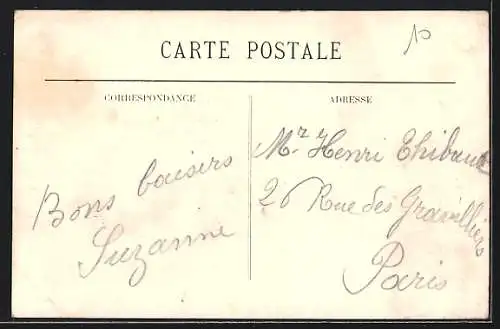 10
CARTE POSTALE
CORRESPONDANCE
Bons baisers
Suzanne
ADRESSE
Mr Henri Thibault
26 Rue des Gravilliers
Paris